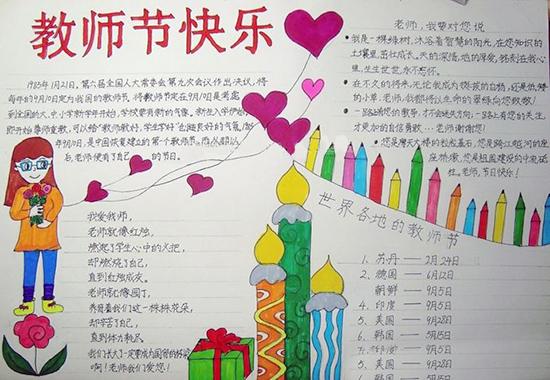 教师节快乐
1985年1月21日,第六届全国人大常委会第九次会议作出决议,将
每年的9月10日定为我国的教师节,将教师节定在9月10日是考虑
到全国的大、中小学新学年开始,学校要有新的气象,新生入学伊始,
即开始尊师重教,可以给"教师教好,学生学好"创造良好的气氛。
年9月10日,是中国恢复建立的第一个教师节。而从那以
后,老师便有了自己的节日。
我爱我师,
老师就像红烛,
燃起了学生心中的火把,
却燃烧了自己,
直到红烛成灰。
老师就像园丁,
养育着我们这一棵棵花朵,
却辛苦了自己,
直到体力耗尽。
我们长大了一定要成为国家的栋梁
啊!老师我们爱您!
老师,我要对您说
我是一棵绿树,沐浴着智慧的阳光,在您知识的
土壤里,茁壮成长。天的深情,地的厚爱,铭刻在我心
里,生生世世,永不忘怀。
在不久的将来,无论我成为挺拔的白杨,还是低矮
的小草,老师,我都将以生命的翠绿向您致敬!
一路上有您的教导,才不会迷失方向;一路上有您的关注,
才更加的自信勇敢……老师谢谢您!
您是摩天大楼的粒粒基石,您是跨江越河的座
座桥墩,您是祖国建设的中流砥
柱。老师,节日快乐!
世界各地的教师节
1、苏丹——2月24日
2、德国——6月12日
朝鲜——9月5日
4、印度——9月5日
5、美国——9月28日
6、韩国——5月15日
——9月5日
5、美国——9月28日